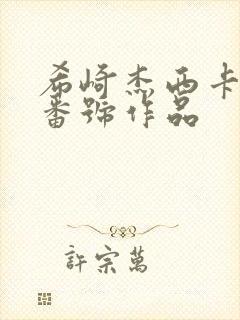 希崎杰西卡
番號作品
許宗萬